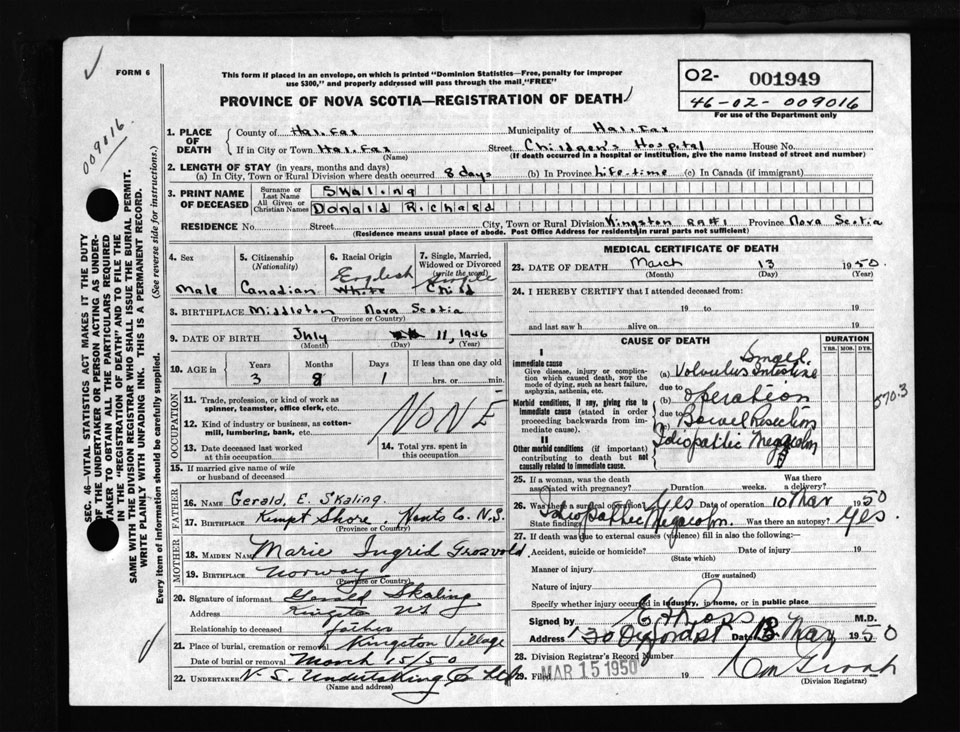 FORM 6
009016.
This form if placed in an envelope, on which is printed "Dominion Statistics—Free, penalty for improper
use $300," and properly addressed will pass through the mail "FREE"
PROVINCE OF NOVA SCOTIA—REGISTRATION OF DEATH
02- 001949
46-02-009016
For use of the Department only
SEC. 46—VITAL STATISTICS ACT MAKES IT THE DUTY
OF THE UNDERTAKER OR PERSON ACTING AS UNDER-
TAKER TO OBTAIN ALL THE PARTICULARS REQUIRED
IN THE "REGISTRATION OF DEATH" AND TO FILE THE
SAME WITH THE DIVISION REGISTRAR WHO SHALL ISSUE THE BURIAL PERMIT.
WRITE PLAINLY WITH UNFADING INK. THIS IS A PERMANENT RECORD.
Every item of information should be carefully supplied. (See reverse side for instructions.)
1. PLACE OF DEATH
County of Halifax Municipality of Halifax
If in City or Town Halifax Street Children's Hospital House No.
(Name) (If death occurred in a hospital or institution, give the name instead of street and number)
2. LENGTH OF STAY (in years, months and days)
(a) In City, Town or Rural Division where death occurred 8 days (b) In Province Life-time (c) In Canada (if immigrant)
3. PRINT NAME OF DECEASED
Surname or Last Name Skaling
All Given or Christian Names Donald Richard
RESIDENCE No. Street City, Town or Rural Division Kingston RR#1 Province Nova Scotia
(Residence means usual place of abode. Post Office Address for residents in rural parts not sufficient)
4. Sex
Male
5. Citizenship
(Nationality)
Canadian
6. Racial Origin
English
White
7. Single, Married,
Widowed or Divorced
(write the word)
Single
Child
8. BIRTHPLACE Middleton Nova Scotia
(Province or Country)
9. DATE OF BIRTH July 11, 1946
(Month) (Day) (Year)
10. AGE in Years Months Days If less than one day old
3 8 1 hrs. or min.
OCCUPATION
11. Trade, profession, or kind of work as
spinner, teamster, office clerk, etc.
12. Kind of industry or business, as cotton-
mill, lumbering, bank, etc.
NONE
13. Date deceased last worked
at this occupation
14. Total yrs. spent in
this occupation
15. If married give name of wife
or husband of deceased
FATHER
16. NAME Gerald, E. Skaling.
17. BIRTHPLACE Kempt Shore, Hants Co. N.S.
(Province or Country)
MOTHER
18. MAIDEN NAME Marie Ingrid Grosvold
19. BIRTHPLACE Norway
(Province or Country)
20. Signature of informant Gerald Skaling
Address Kingston N.S.
Relationship to deceased father
21. Place of burial, cremation or removal Kingston Village
Date of burial or removal March 15/50
22. UNDERTAKER N.S. Undertaking Co Ltd
(Name and address)
MEDICAL CERTIFICATE OF DEATH
23. DATE OF DEATH March 13 1950.
(Month) (Day) (Year)
24. I HEREBY CERTIFY that I attended deceased from:
19 to 19
and last saw h alive on 19
CAUSE OF DEATH
DURATION
YRS. MOS. DYS.
I
Immediate cause
Give disease, injury or complica-
tion which caused death, not the
mode of dying, such as heart failure,
asphyxia, asthenia, etc.
Morbid conditions, if any, giving rise to
immediate cause (stated in order
proceeding backwards from im-
mediate cause).
II
Other morbid conditions (if important)
contributing to death but not
causally related to immediate cause.
Small
(a) Volvulus Intestine
due to
(b) Operation
due to Bowel Resection
Idiopathic Megacolon
570.3
25. If a woman, was the death
associated with pregnancy? Duration weeks. Was there
a delivery?
26. Was there a surgical operation? Yes Date of operation 10 Mar 1950
State findings Idiopathic Megacolon. Was there an autopsy? Yes.
27. If death was due to external causes (violence) fill in also the following:—
Accident, suicide or homicide? Date of injury 19
(State which)
Manner of injury
(How sustained)
Nature of injury
Specify whether injury occurred in industry, in home, or in public place
Signed by Ross M.D.
Address Date 13 Mar 1950
28. Division Registrar's Record Number
29. Filed MAR 15 1950 19
(Division Registrar)